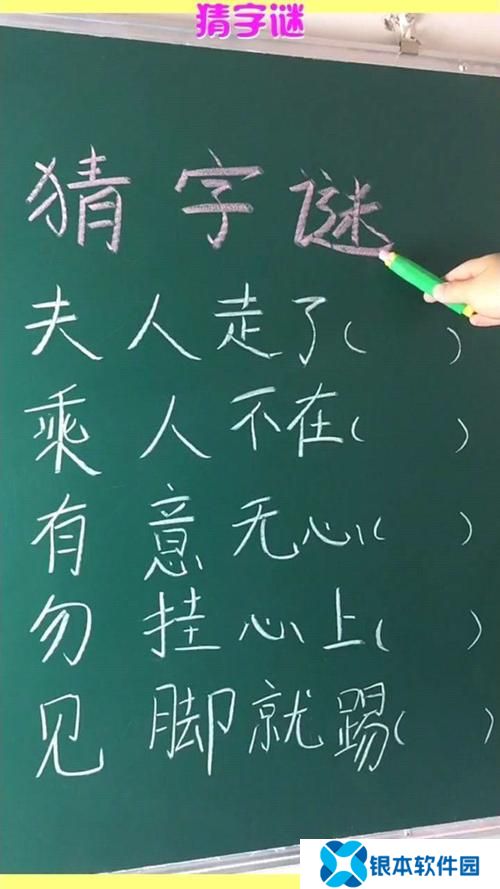 猜字谜
猜字谜
夫人走了( )
乘人不在( )
有意无心( )
勿挂心上( )
见脚就踢( )
银本软件园